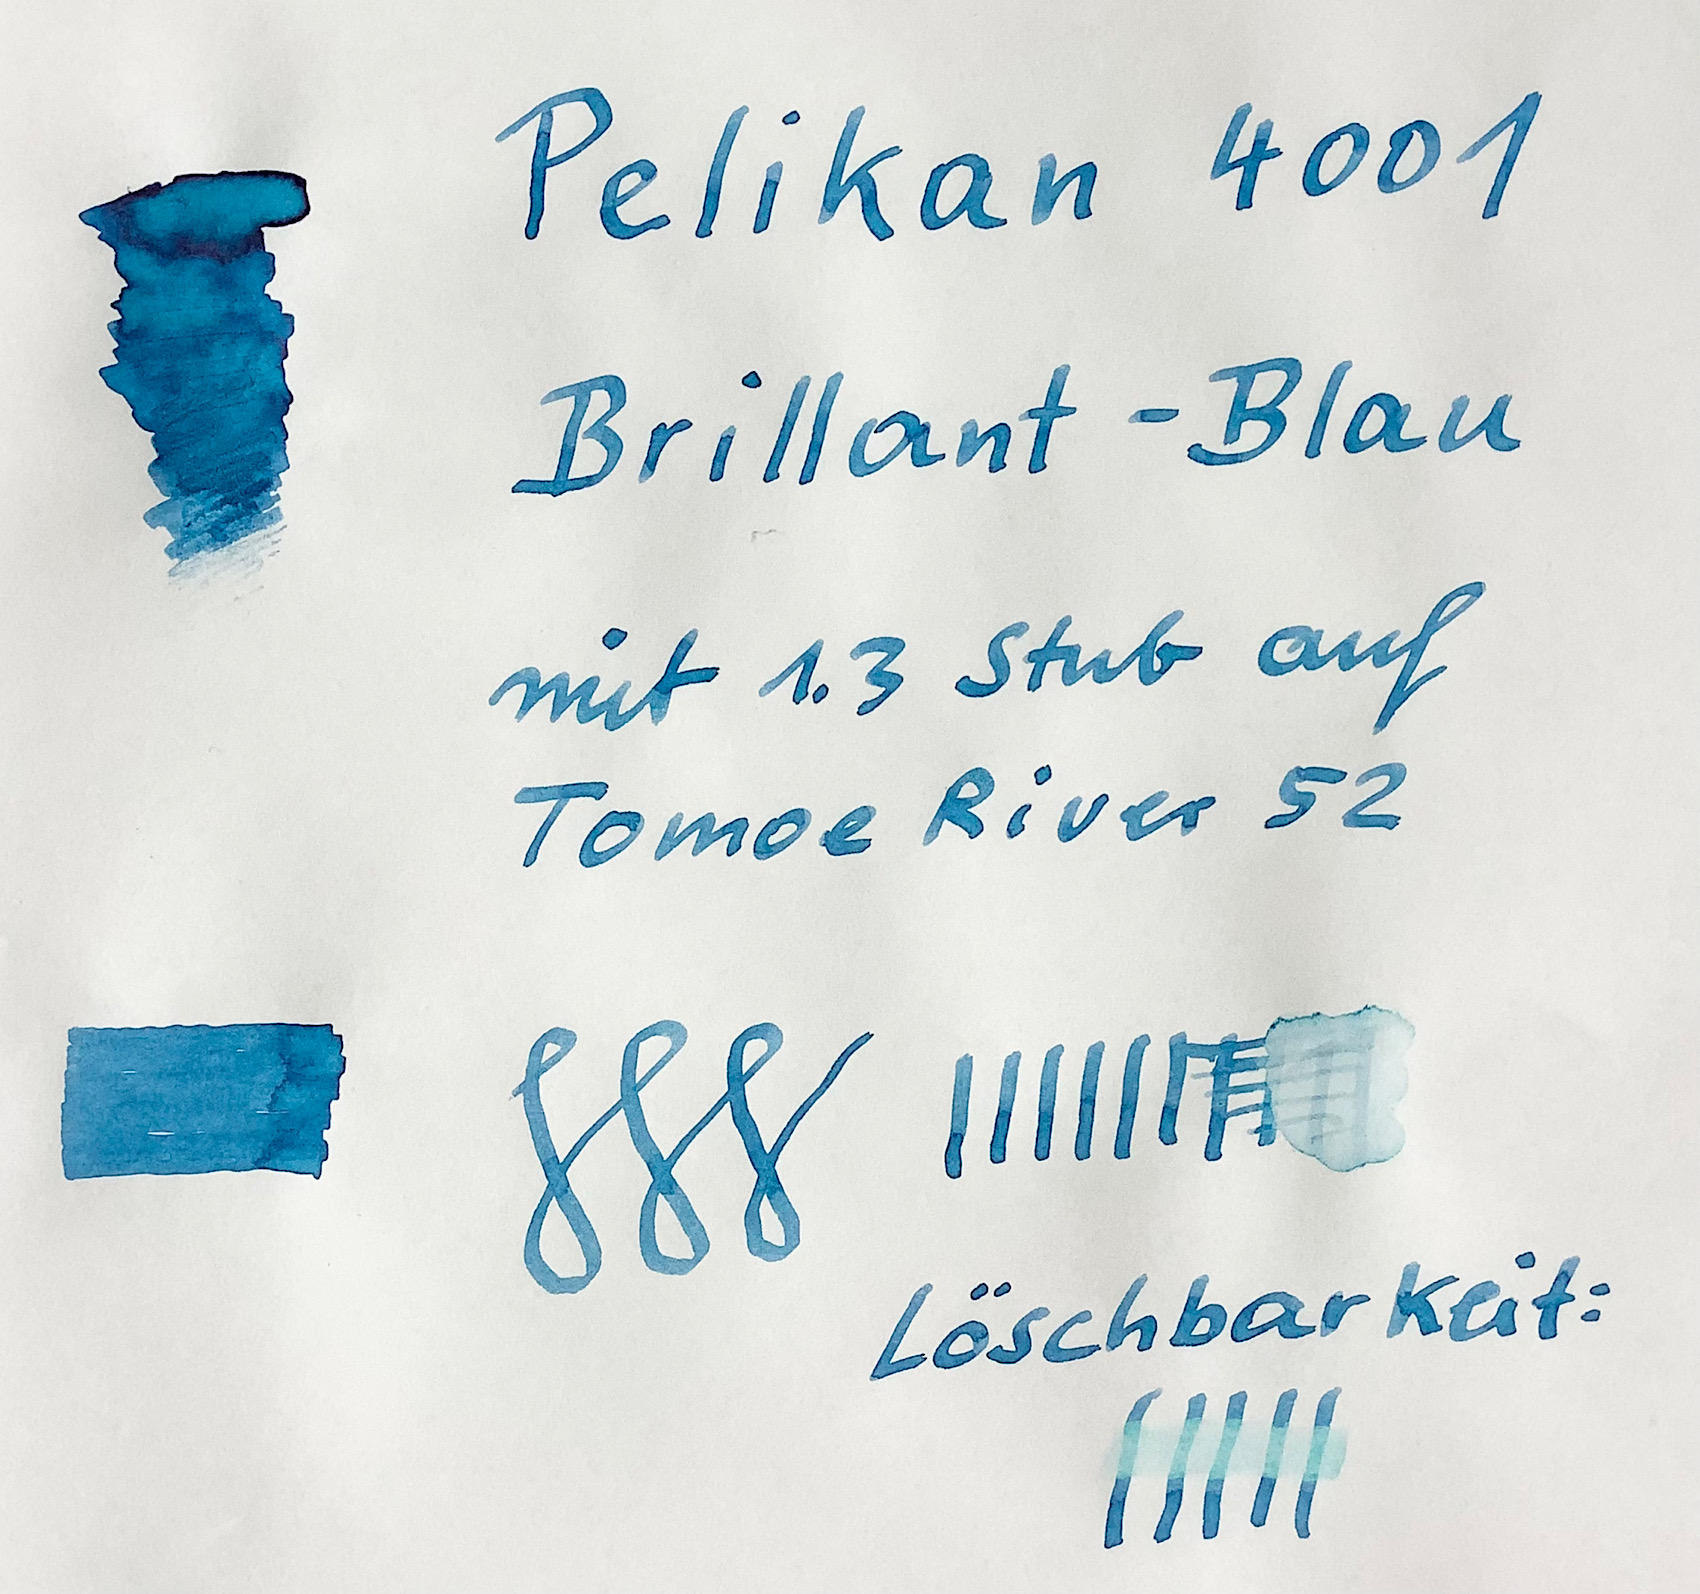 Pelikan 4001
Brillant-Blau
mit 1.3 Stub auf
Tomoe River 52
Löschbarkeit: